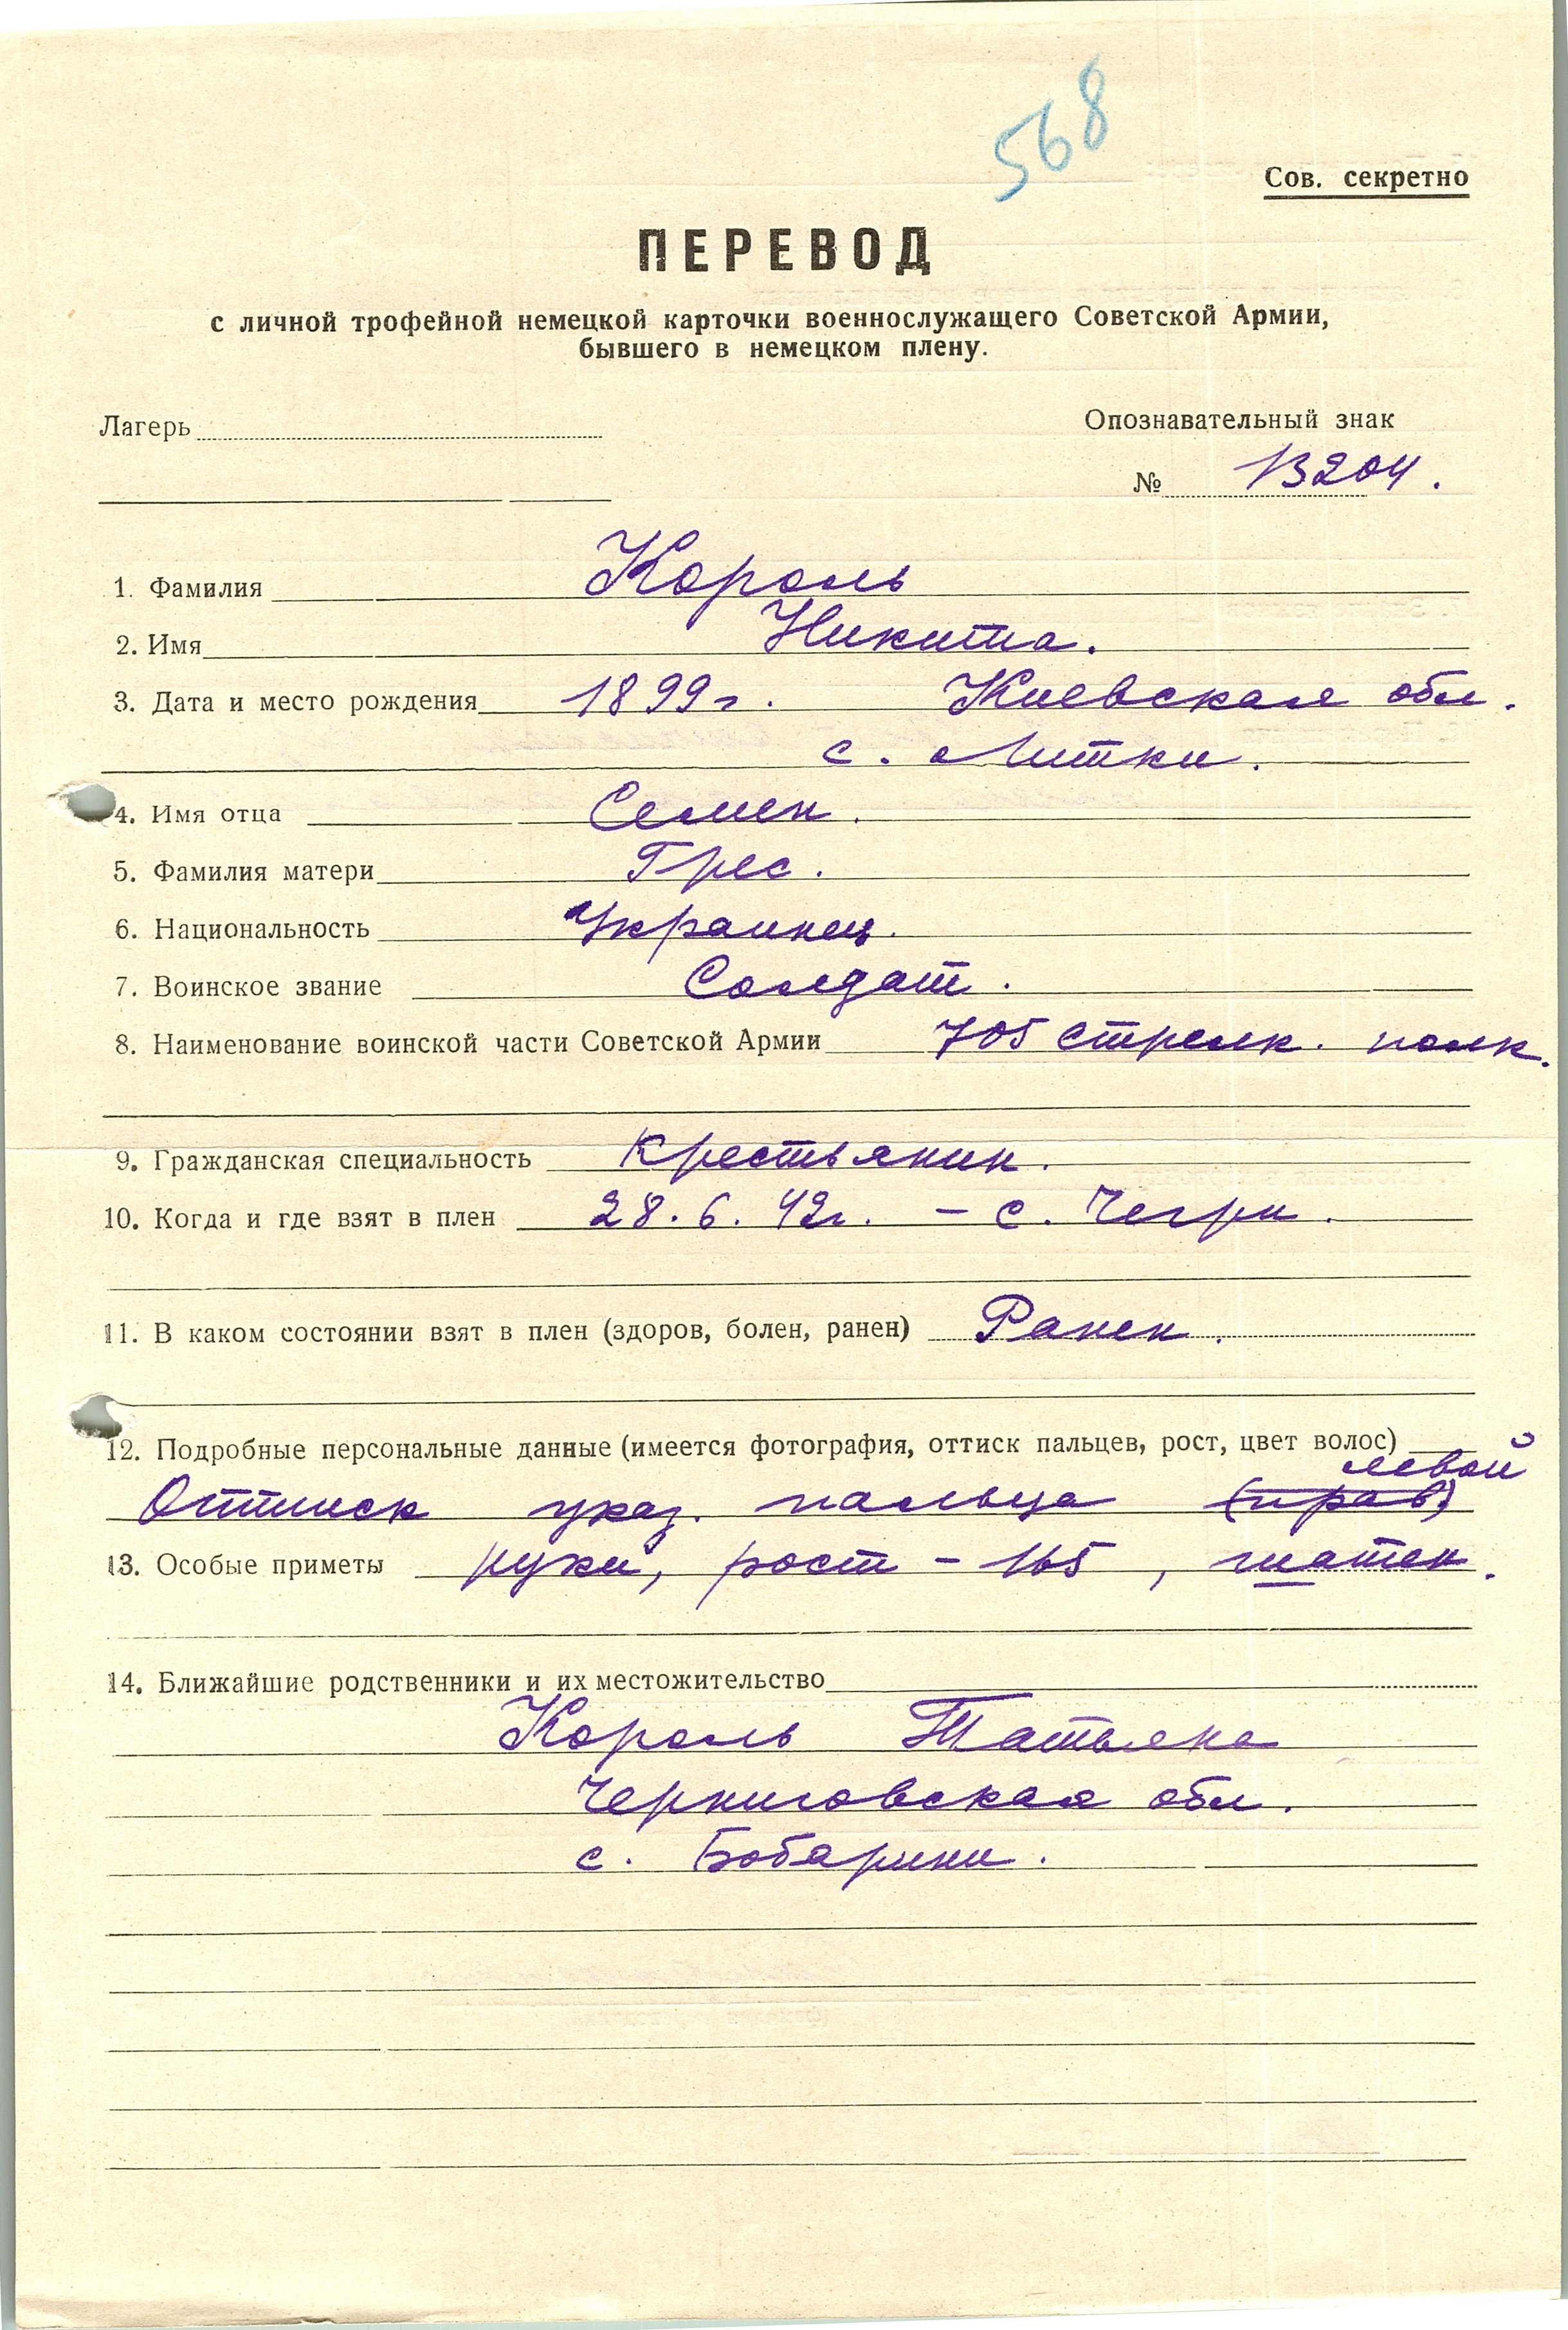 568
Сов. секретно
ПЕРЕВОД
с личной трофейной немецкой карточки военнослужащего Советской Армии,
бывшего в немецком плену.
Лагерь
Опознавательный знак
№ 13204.
1. Фамилия Король
2. Имя Никита.
3. Дата и место рождения 1899 г. Киевская обл.
с. Литки.
4. Имя отца Семен.
5. Фамилия матери Грес.
6. Национальность Украинец.
7. Воинское звание Солдат.
8. Наименование воинской части Советской Армии 705 стрелк. полк.
9. Гражданская специальность Крестьянин.
10. Когда и где взят в плен 28.6.42г. – с. Чегри.
11. В каком состоянии взят в плен (здоров, болен, ранен) Ранен.
12. Подробные персональные данные (имеется фотография, оттиск пальцев, рост, цвет волос)
левой
Оттиск указ. пальца (прав)
13. Особые приметы руки, рост – 165, шатен.
14. Ближайшие родственники и их местожительство
Король Татьяна
Черниговская обл.
с. Бобарики.